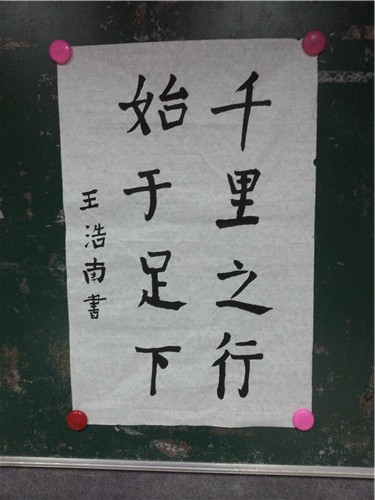 千里之行
始于足下
王浩南書